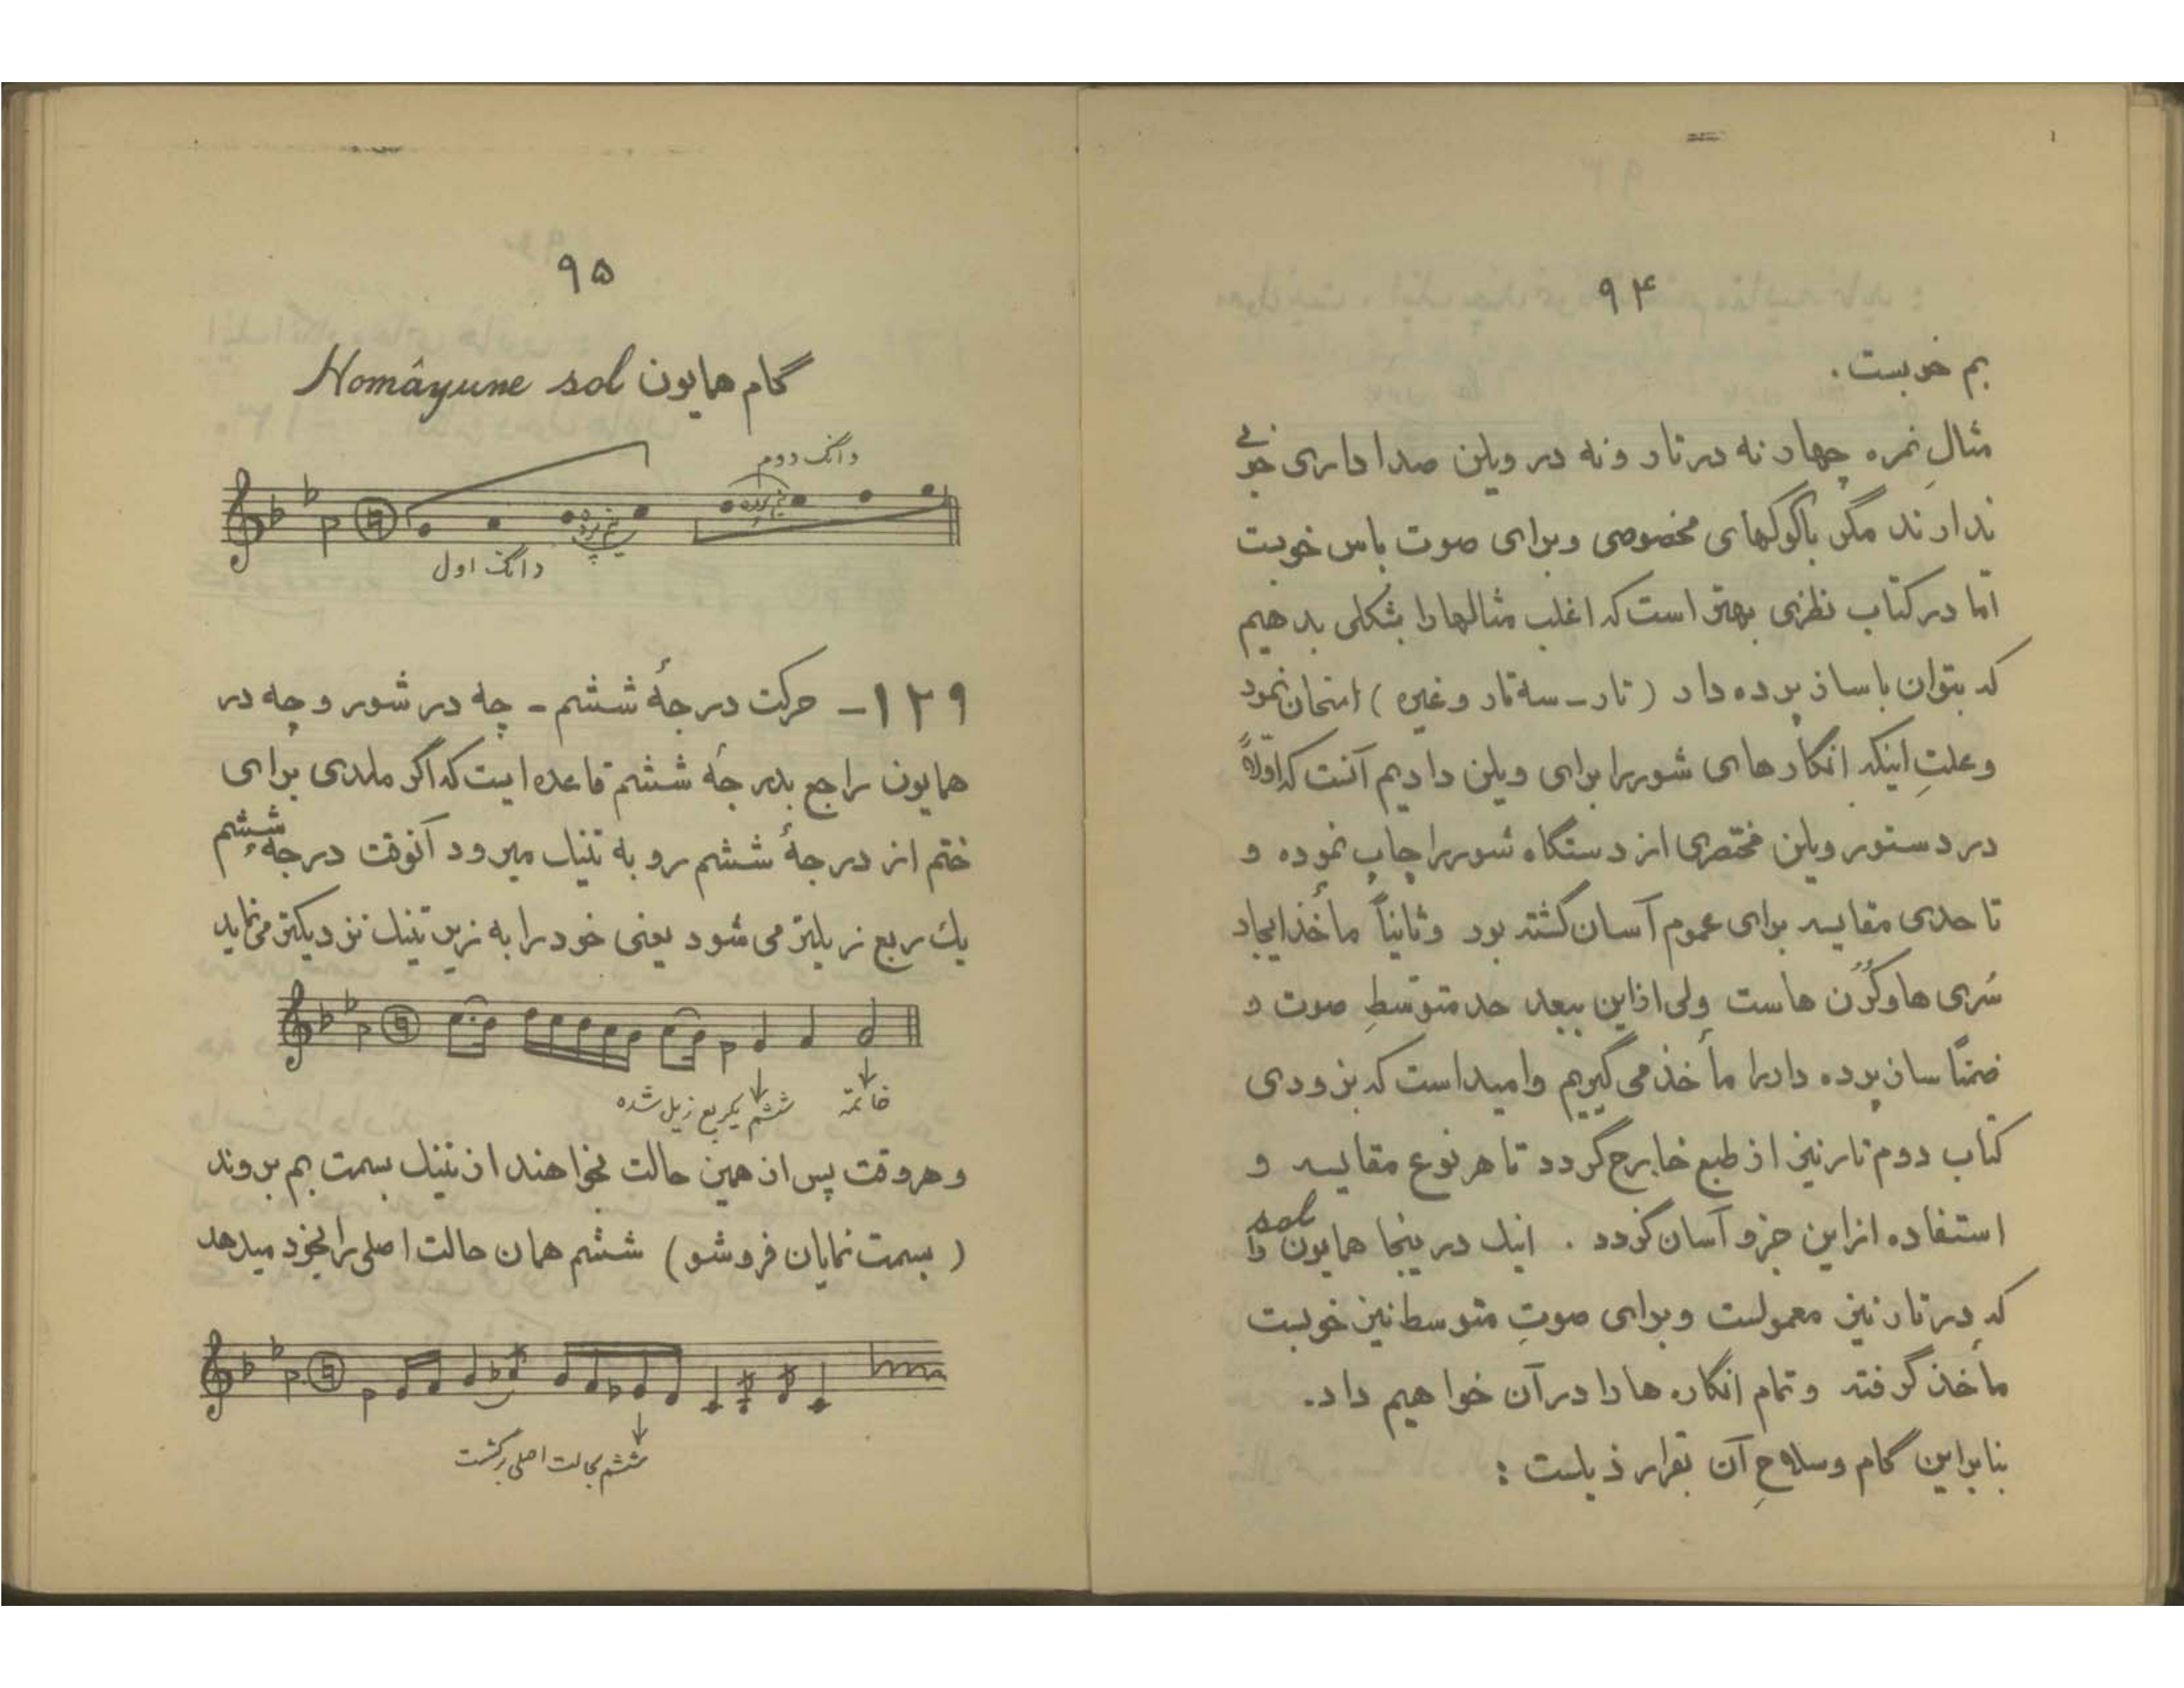 ۹۴
بم خوبست.
مثالِ نمره چهار نه در تار و نه در ویلن صدا داری خوبی
ندارند مگر باکوکهای مخصوصی و برای صوت باس خوبست
امّا در کتاب نظری بهتر است که اغلب مثالها را بشکلی بدهیم
که بتوان با ساز پرده دار (تار ـ سه تار و غیره) امتحان نمود
و علتِ اینکه انگارهای شور را برای ویلن دادیم آنست که اوّلاً
در دستور ویلن مختصری از دستگاه شور را چاپ نموده و
تا حدی مقایسه برای عموم آسان گشته بود و ثانیاً مأخذ ایجاد
سُری ها و کُرُن هاست ولی از این ببعد حد متوّسطِ صوت و
ضمنًا ساز پرده دار را مأخذ می گیریم و امید است که بزودی
کتاب دوم تار نیز از طبع خارج گردد تا هر نوع مقایسه و
استفاده از این جزو آسان گردد . اینک در ینجا همایون sol را
که در تار نیز معمولست و برای صوتِ متوسط نیز خوبست
مأخذ گرفته و تمام انگاره ها را در آن خواهیم داد.
بنابراین گام و سلاحِ آن بقرار ذیلست :
۹۵
گام همایون Homâyune sol
دانگ دوم
نیم پرده
نیم پرده
دانگ اول
۱۲۹ـ حرکت درجهٔ ششم ـ چه در شور و چه در
همایون راجع بدرجهٔ ششم قاعده ایست که اگر ملدی برای
ختم از درجهٔ ششم رو به تنیک میرود آنوقت درجهٔ ششم
یك ربع زیلتر می شود یعنی خود را به زیر تنیك نزدیکتر می نماید
ششم یکربع زیل شده
خاتمه
و هروقت پس از همین حالت بخواهند از تنیك بسمت بم بروند
(بسمت نمایان فروشو) ششم همان حالت اصلی را بخود میدهد
ششم بحالت اصلی برگشت